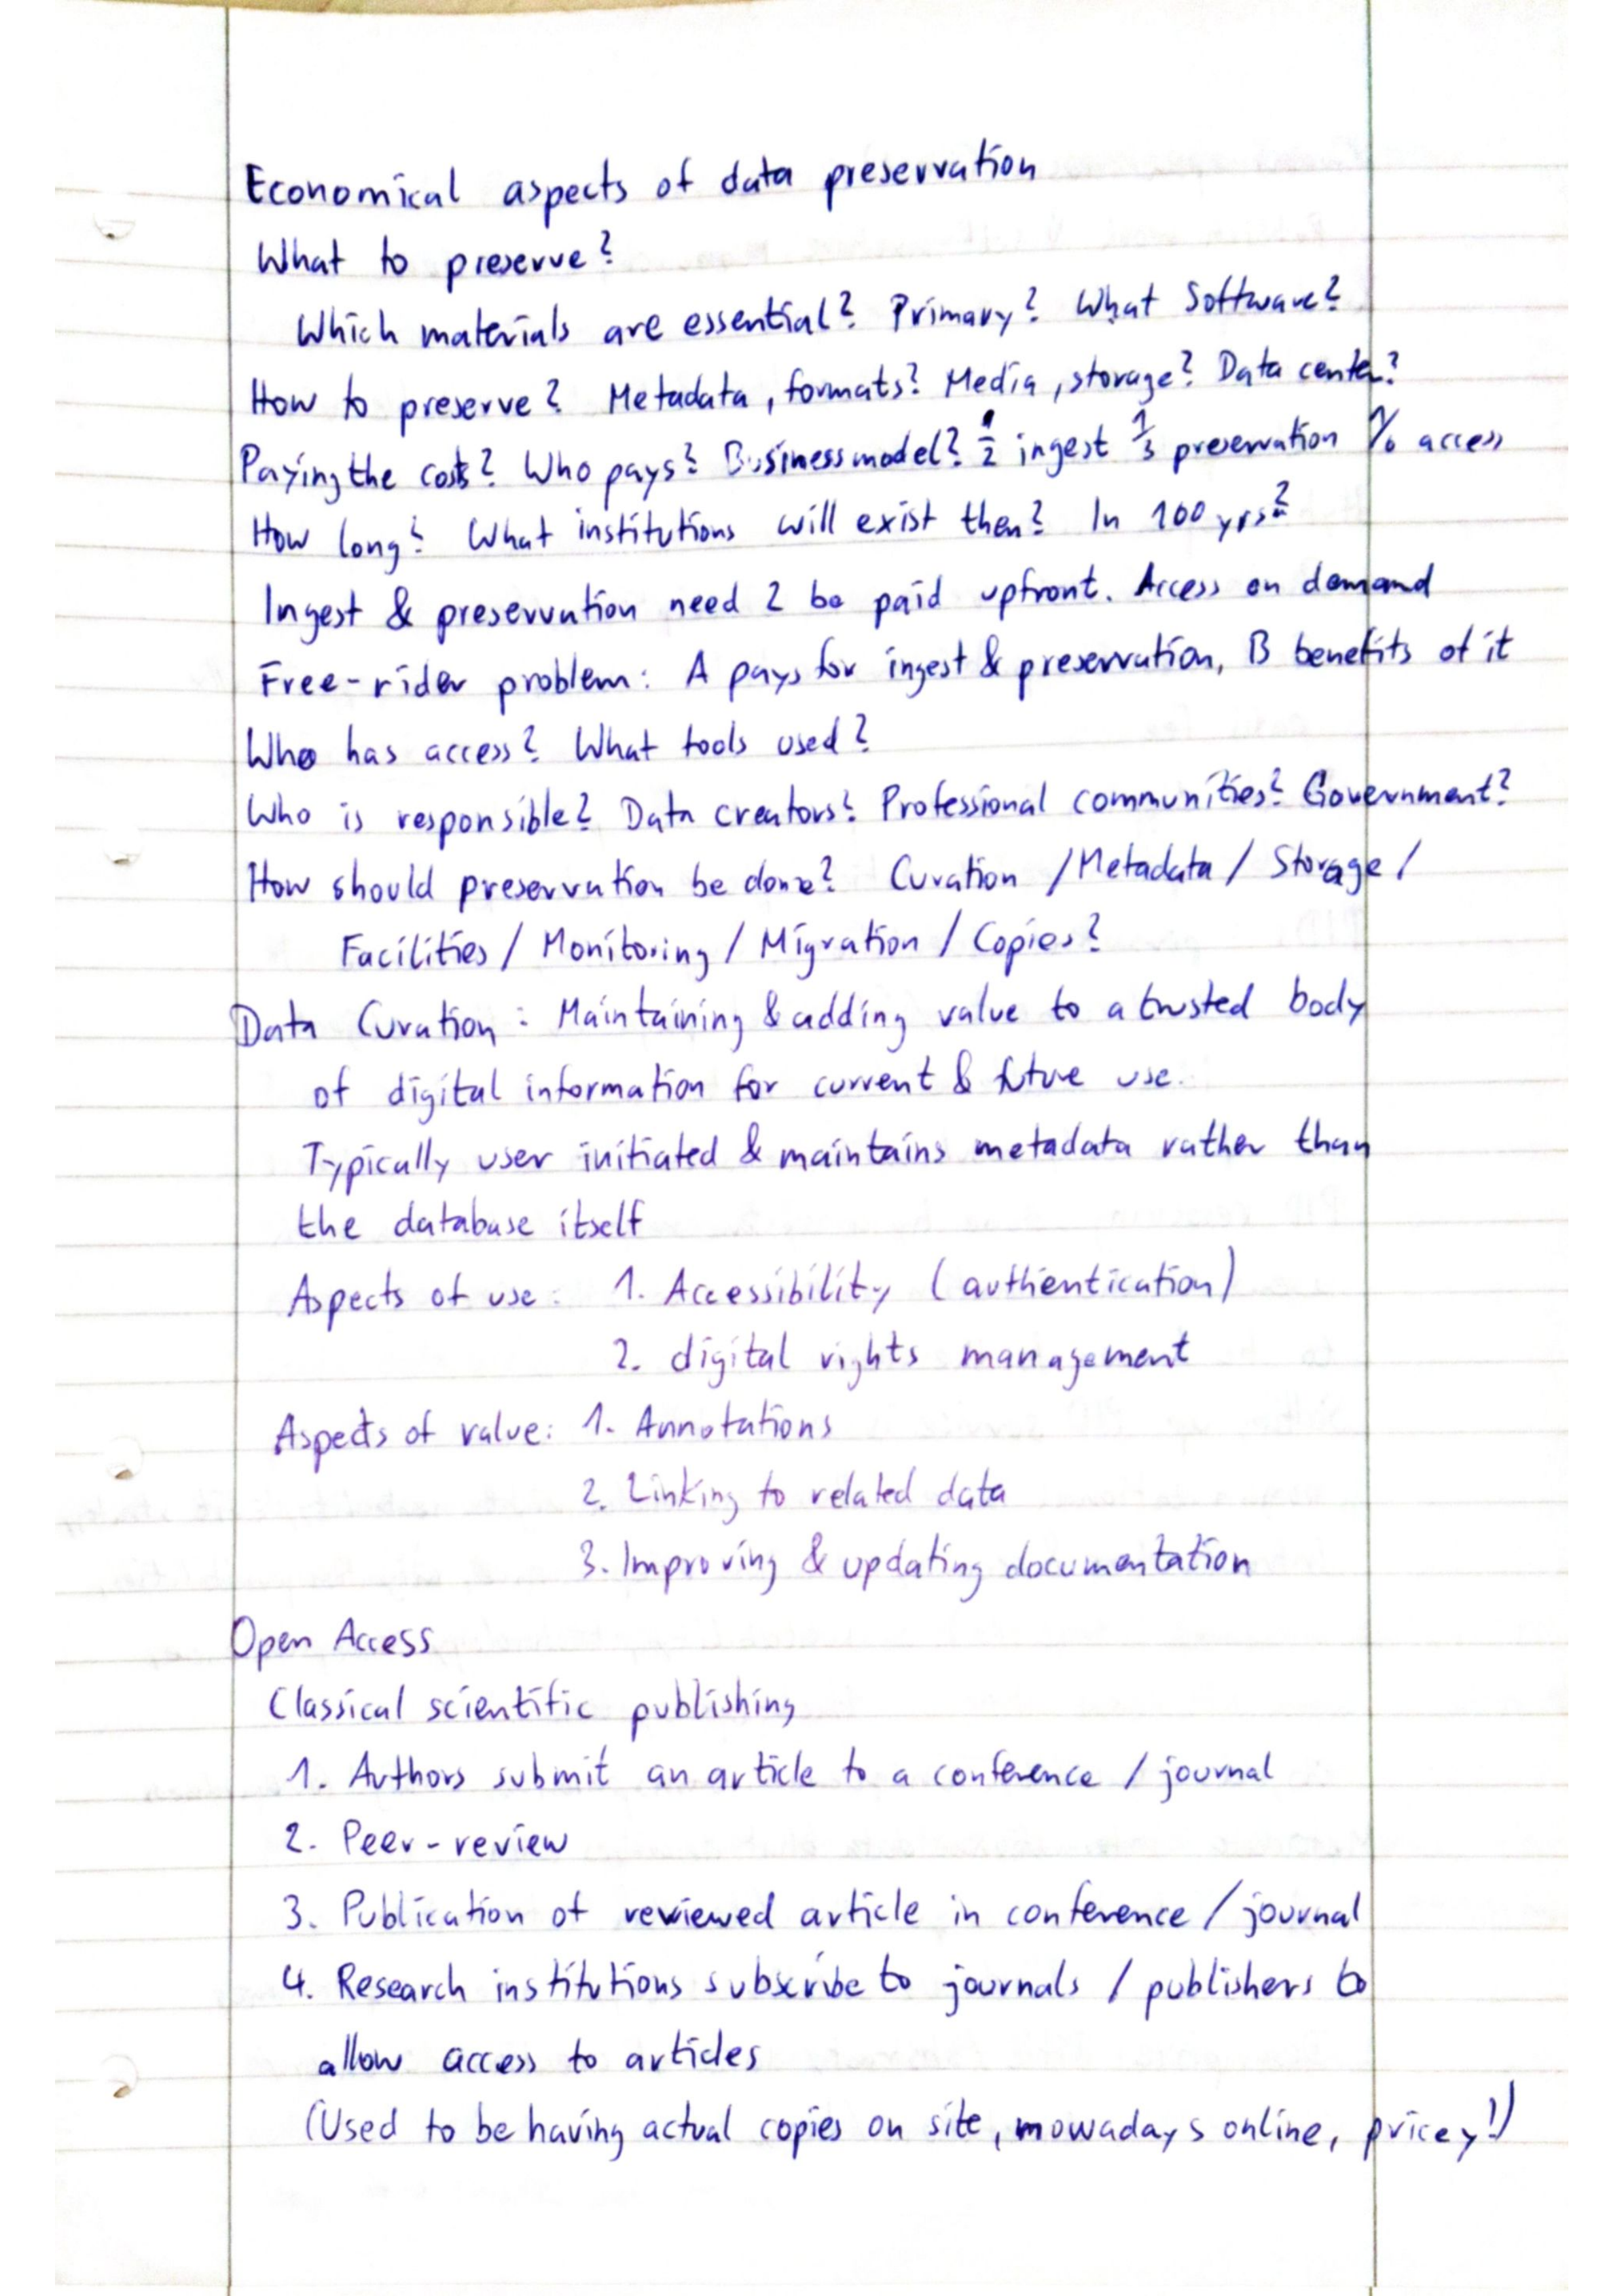 Economical aspects of data preservation
What to preserve?
Which materials are essential? Primary? What Software?
How to preserve? Metadata, formats? Media, storage? Data center?
Paying the costs? Who pays? Businessmodel? 1/2 ingest 1/3 preservation 1/6 access
How long? What institutions will exist then? In 100 yrs?
Ingest & preservation need 2 be paid upfront. Access on demand
Free-rider problem: A pays for ingest & preservation, B benefits of it
Who has access? What tools used?
Who is responsible? Data creators? Professional communities? Government?
How should preservation be done? Curation / Metadata / Storage /
Facilities / Monitoring / Migration / Copies?
Data Curation: Maintaining & adding value to a trusted body
of digital information for current & future use.
Typically user initiated & maintains metadata rather than
the database itself
Aspects of use: 1. Accessibility (authentication)
2. digital rights management
Aspects of value: 1. Annotations
2. Linking to related data
3. Improving & updating documentation
Open Access
Classical scientific publishing
1. Authors submit an article to a conference / journal
2. Peer-review
3. Publication of reviewed article in conference / journal
4. Research institutions subscribe to journals / publishers to
allow access to articles
(Used to be having actual copies on site, nowadays online, pricey!)